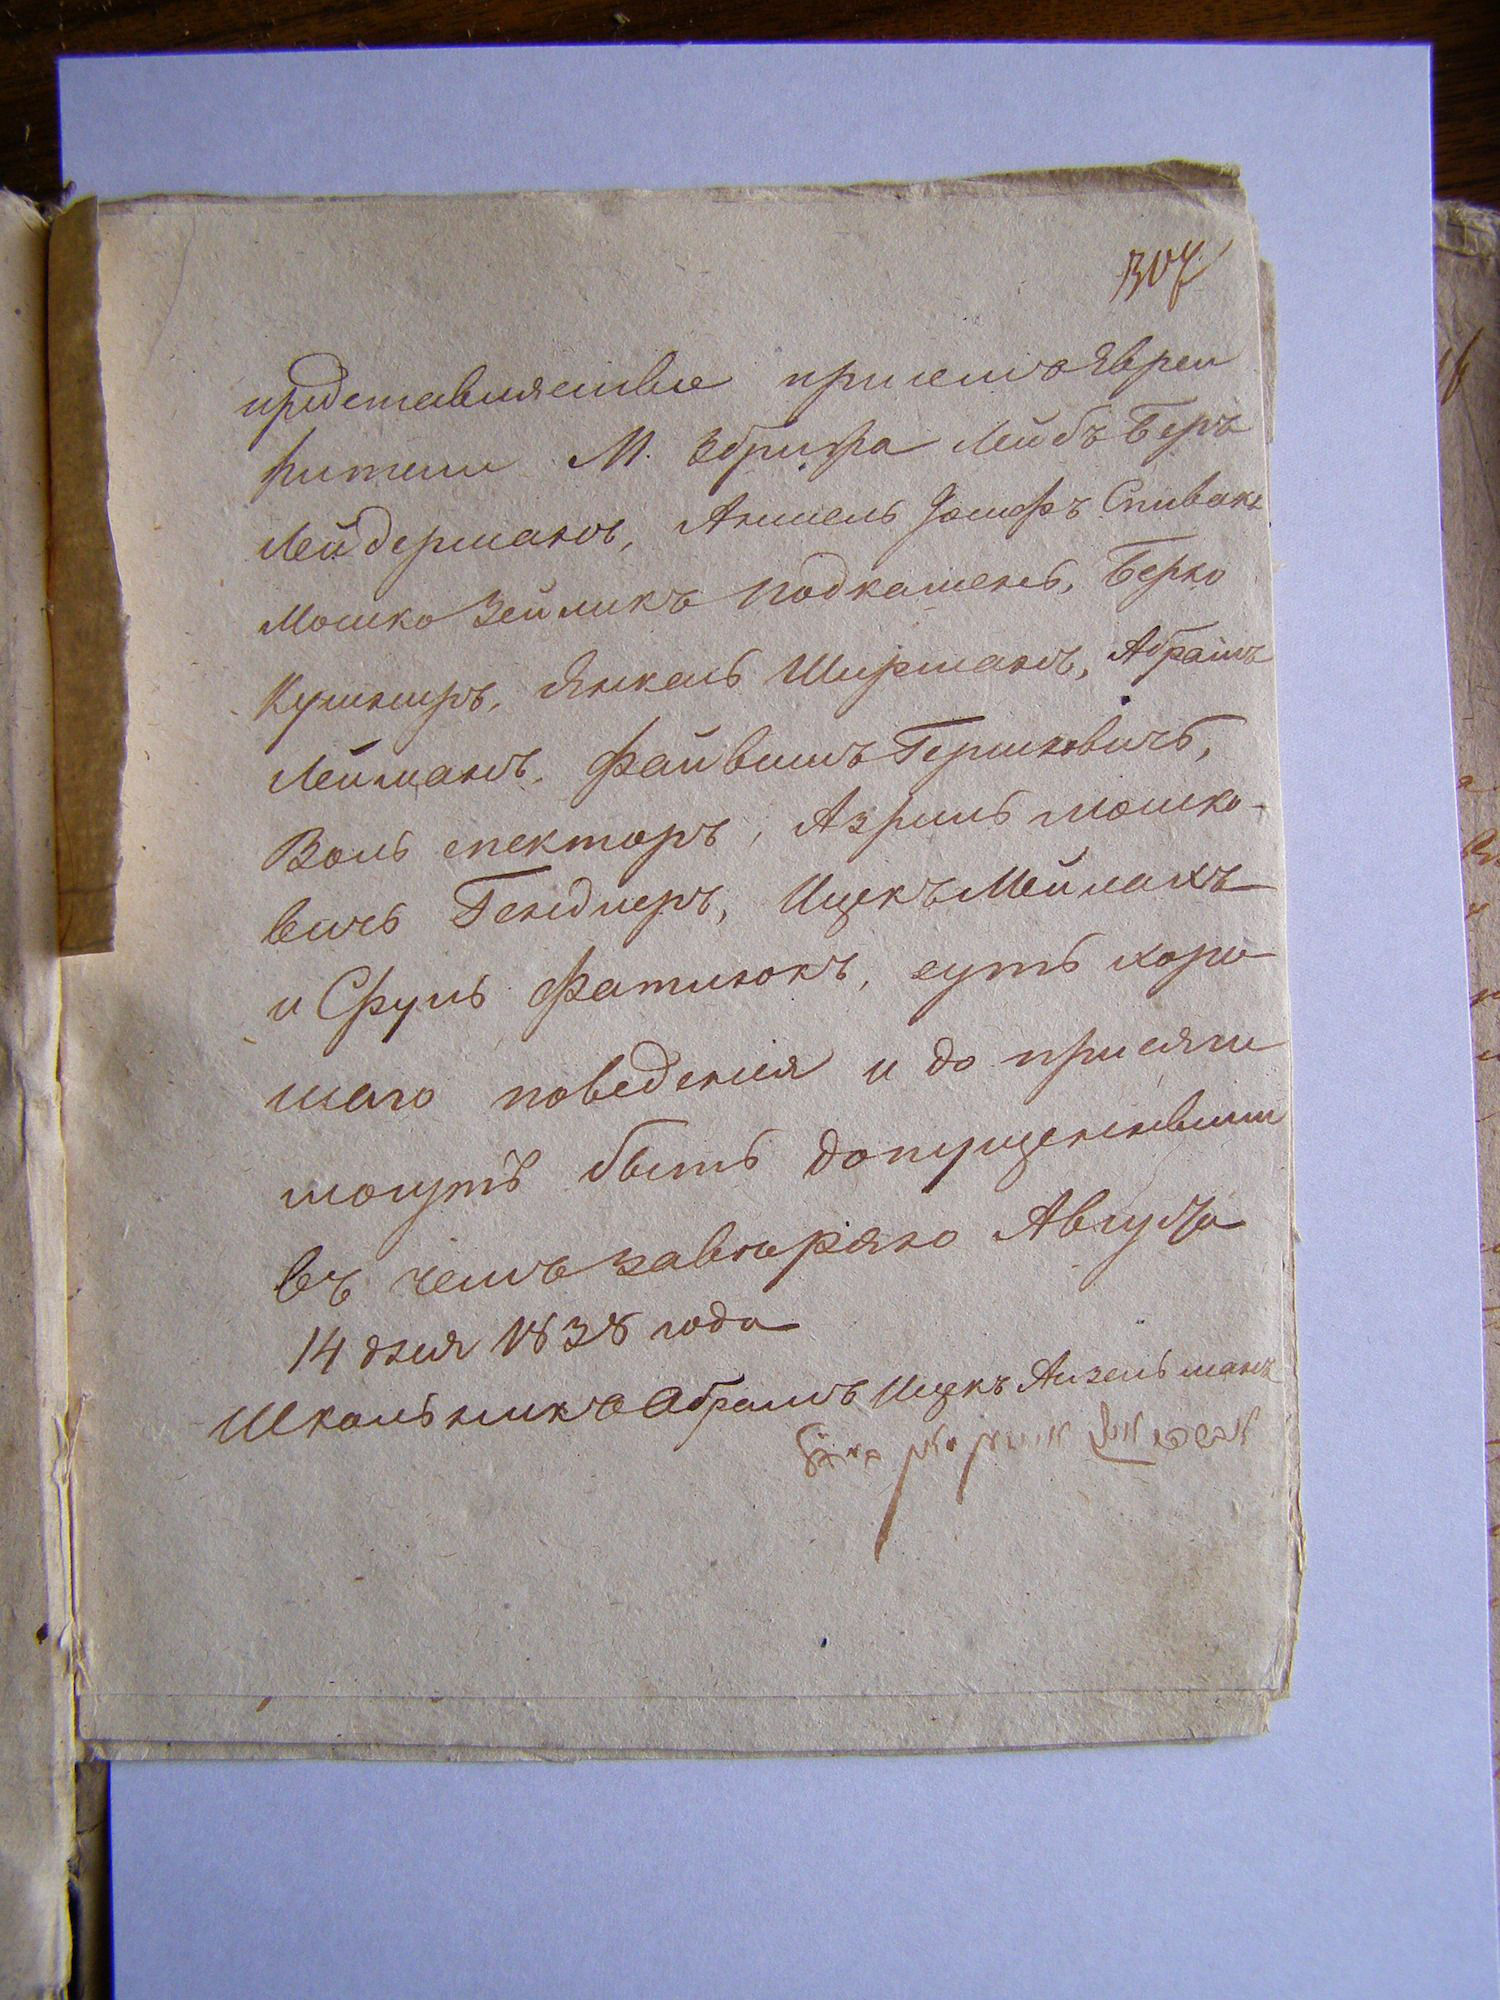 307
представляемые при семъ Евреи
жители М. Збрижа Лейбъ Беръ
Лейдерманъ, Аншель Іосифъ Спивакъ
Мошко Зейликъ Подкамень, Берко
Кушниръ, Янкель Ширманъ, Абрамъ
Лейманъ, Файвишъ Гершковичъ,
Воль спекторъ, Азриль Мошко-
вичъ Гендлеръ, Ицекъ Меймахъ
и Сруль Фатиюкъ, суть хоро
шаго поведения и до присяги
могутъ быть допущенными
въ чемъ завѣряю Августа
14 дня 1838 года
Школьникъ Абрамъ Ицекъ Айзенманъ